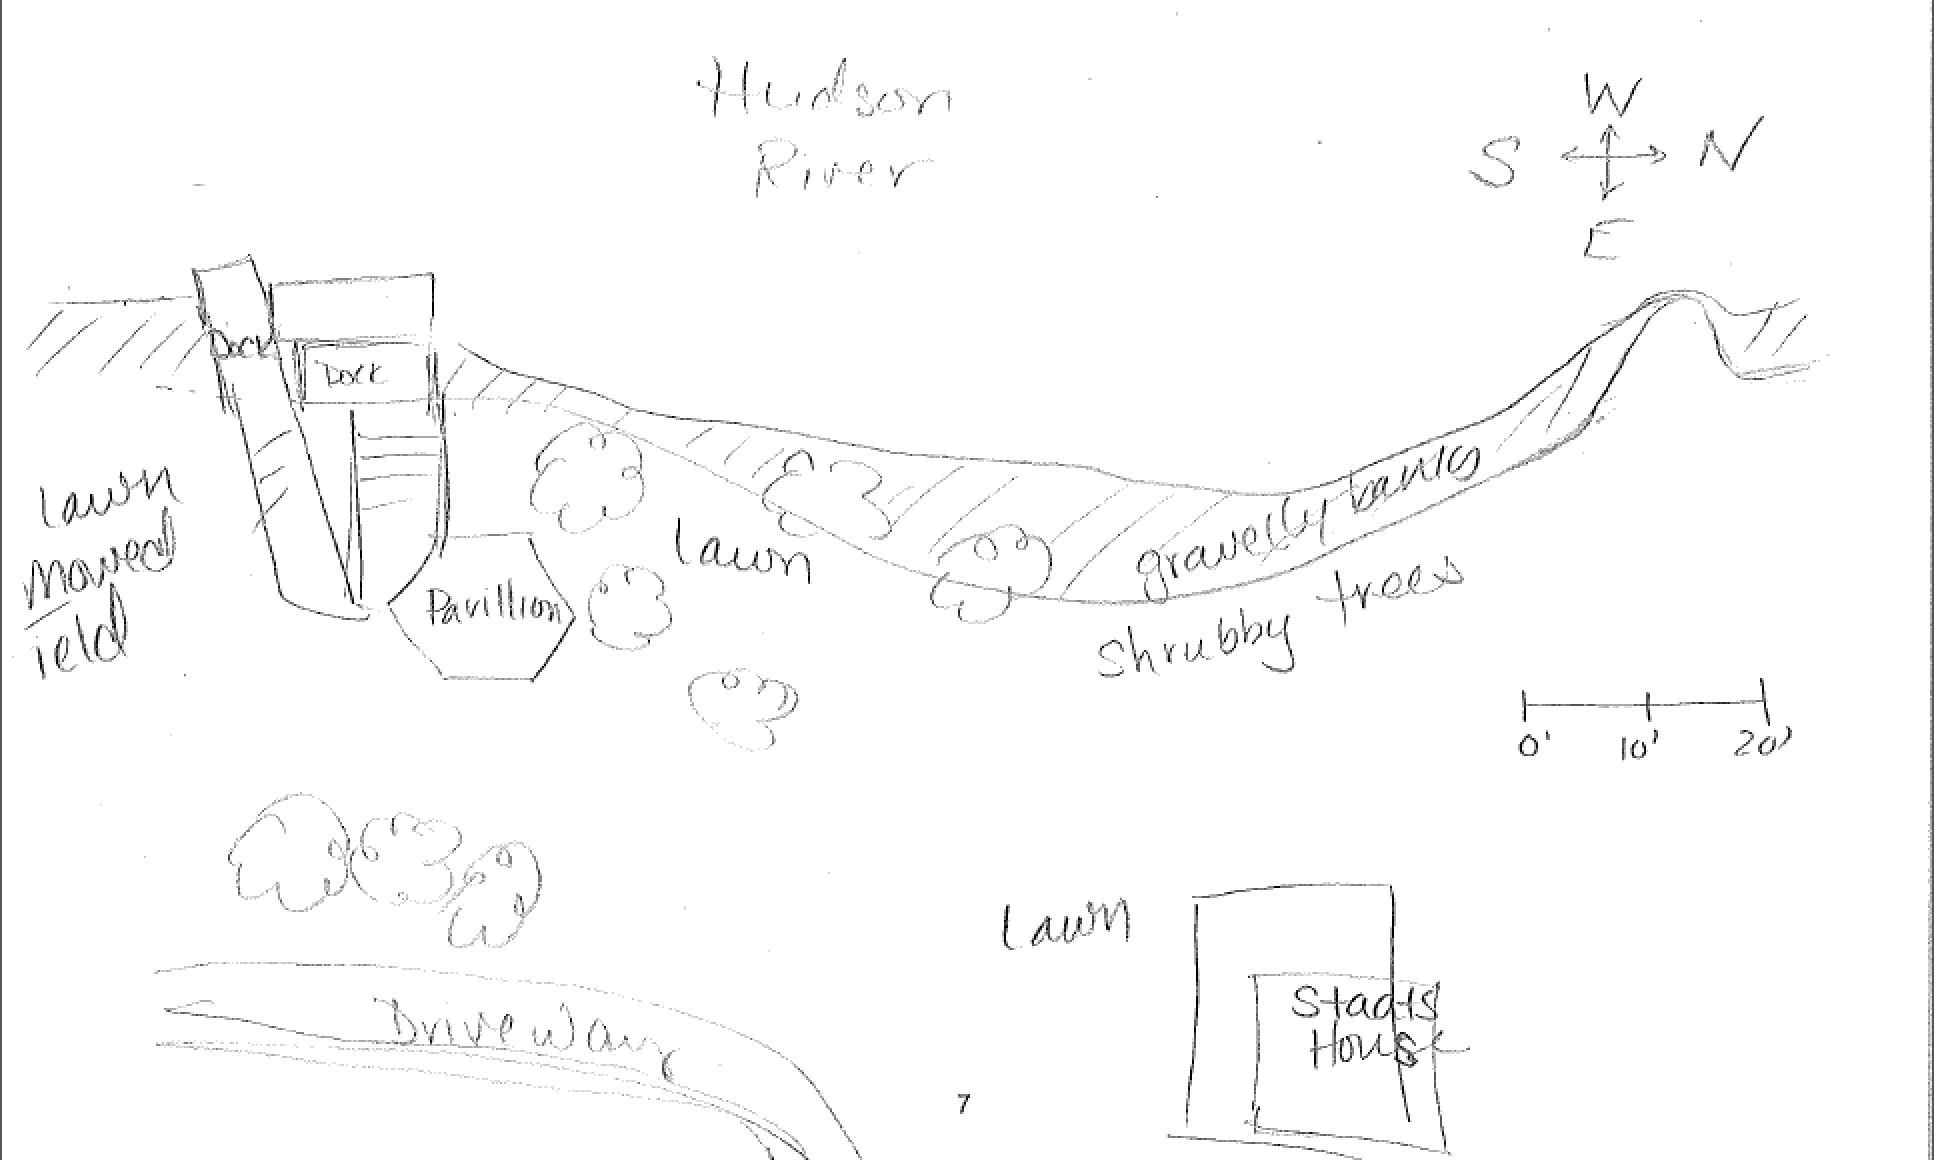 Hudson
River
W
S N
E
Dock
Dock
lawn
mowed
ield
lawn
Pavillion
gravelly banks
shrubby trees
0' 10' 20'
lawn
Staats
House
Driveway
7